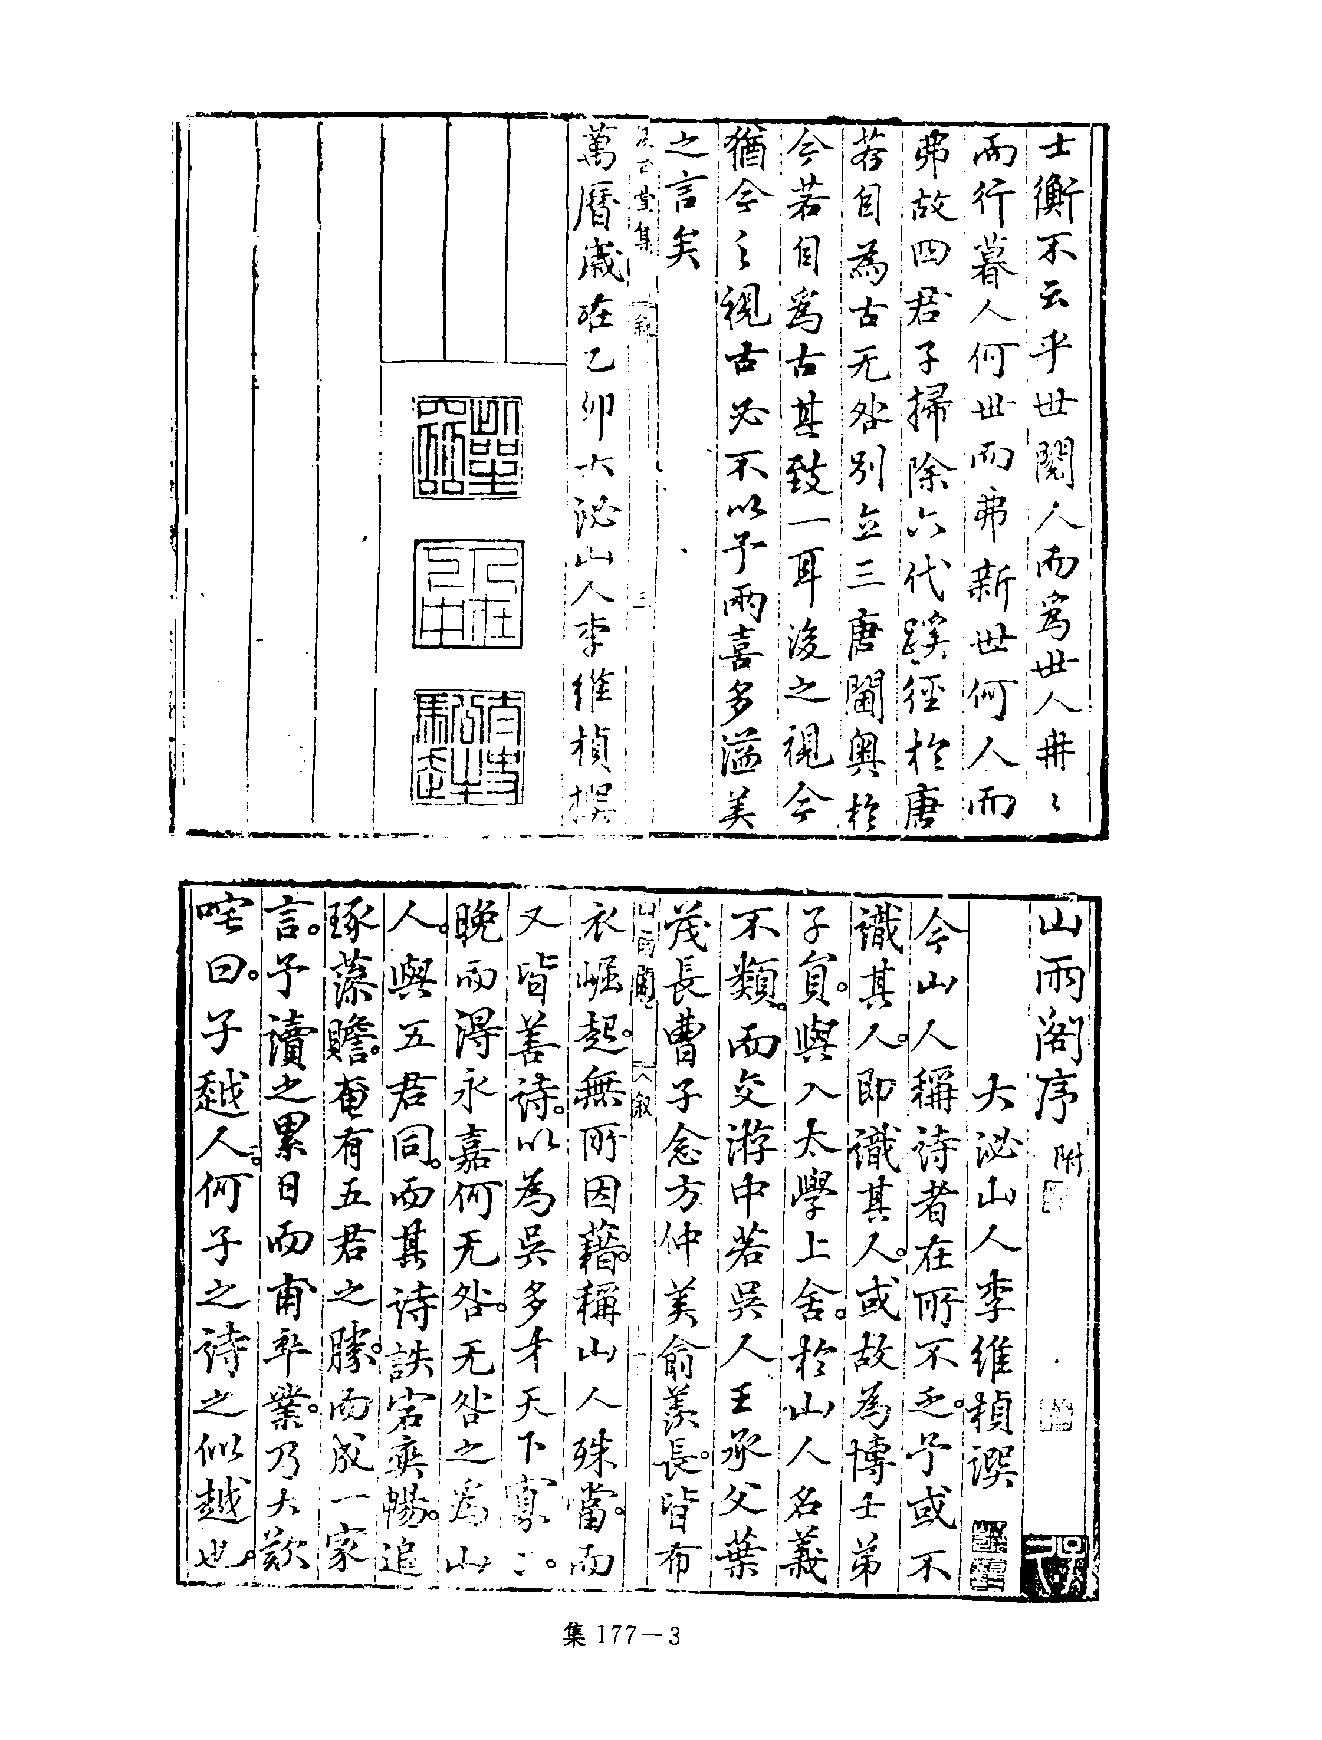 士衡不云乎世閱人而為世人冉〻
而行暮人何世而弗新世何人而
弗故四君子掃除六代蹊徑於唐
若自為古无咎別立三唐閫奧於
今若自為古其致一耳後之視今
猶今之視古必不以予兩喜多溢美
之言矣
萬曆歲在乙卯大泌山人李維楨撰
山雨閣序 附
大泌山人李維楨譔
今山人稱詩者在所不乏予或不
識其人即識其人或故為博士弟
子員與入太學上舍於山人名義
不類而交游中若吳人王承父葉
茂長曹子念方仲美俞羨長皆布
衣崛起無所因藉稱山人殊當而
又皆善詩以為吳多才天下寡二
晚而得永嘉何无咎无咎之為山
人與五君同而其詩詄宕奕暢追
琢藻贍奄有五君之勝而成一家
言予讀之累日而甫卒業乃大歎
咤曰子越人何子之詩之似越也
集 177－3